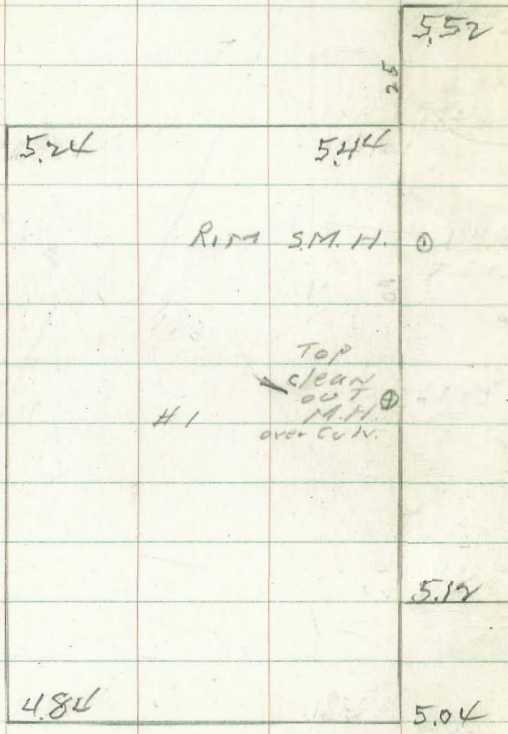 5.52
25
5.24 5.44
RIM S.M.H.
Top
clean
out
M.H.
over Culv.
#1
5.12
4.84 5.04